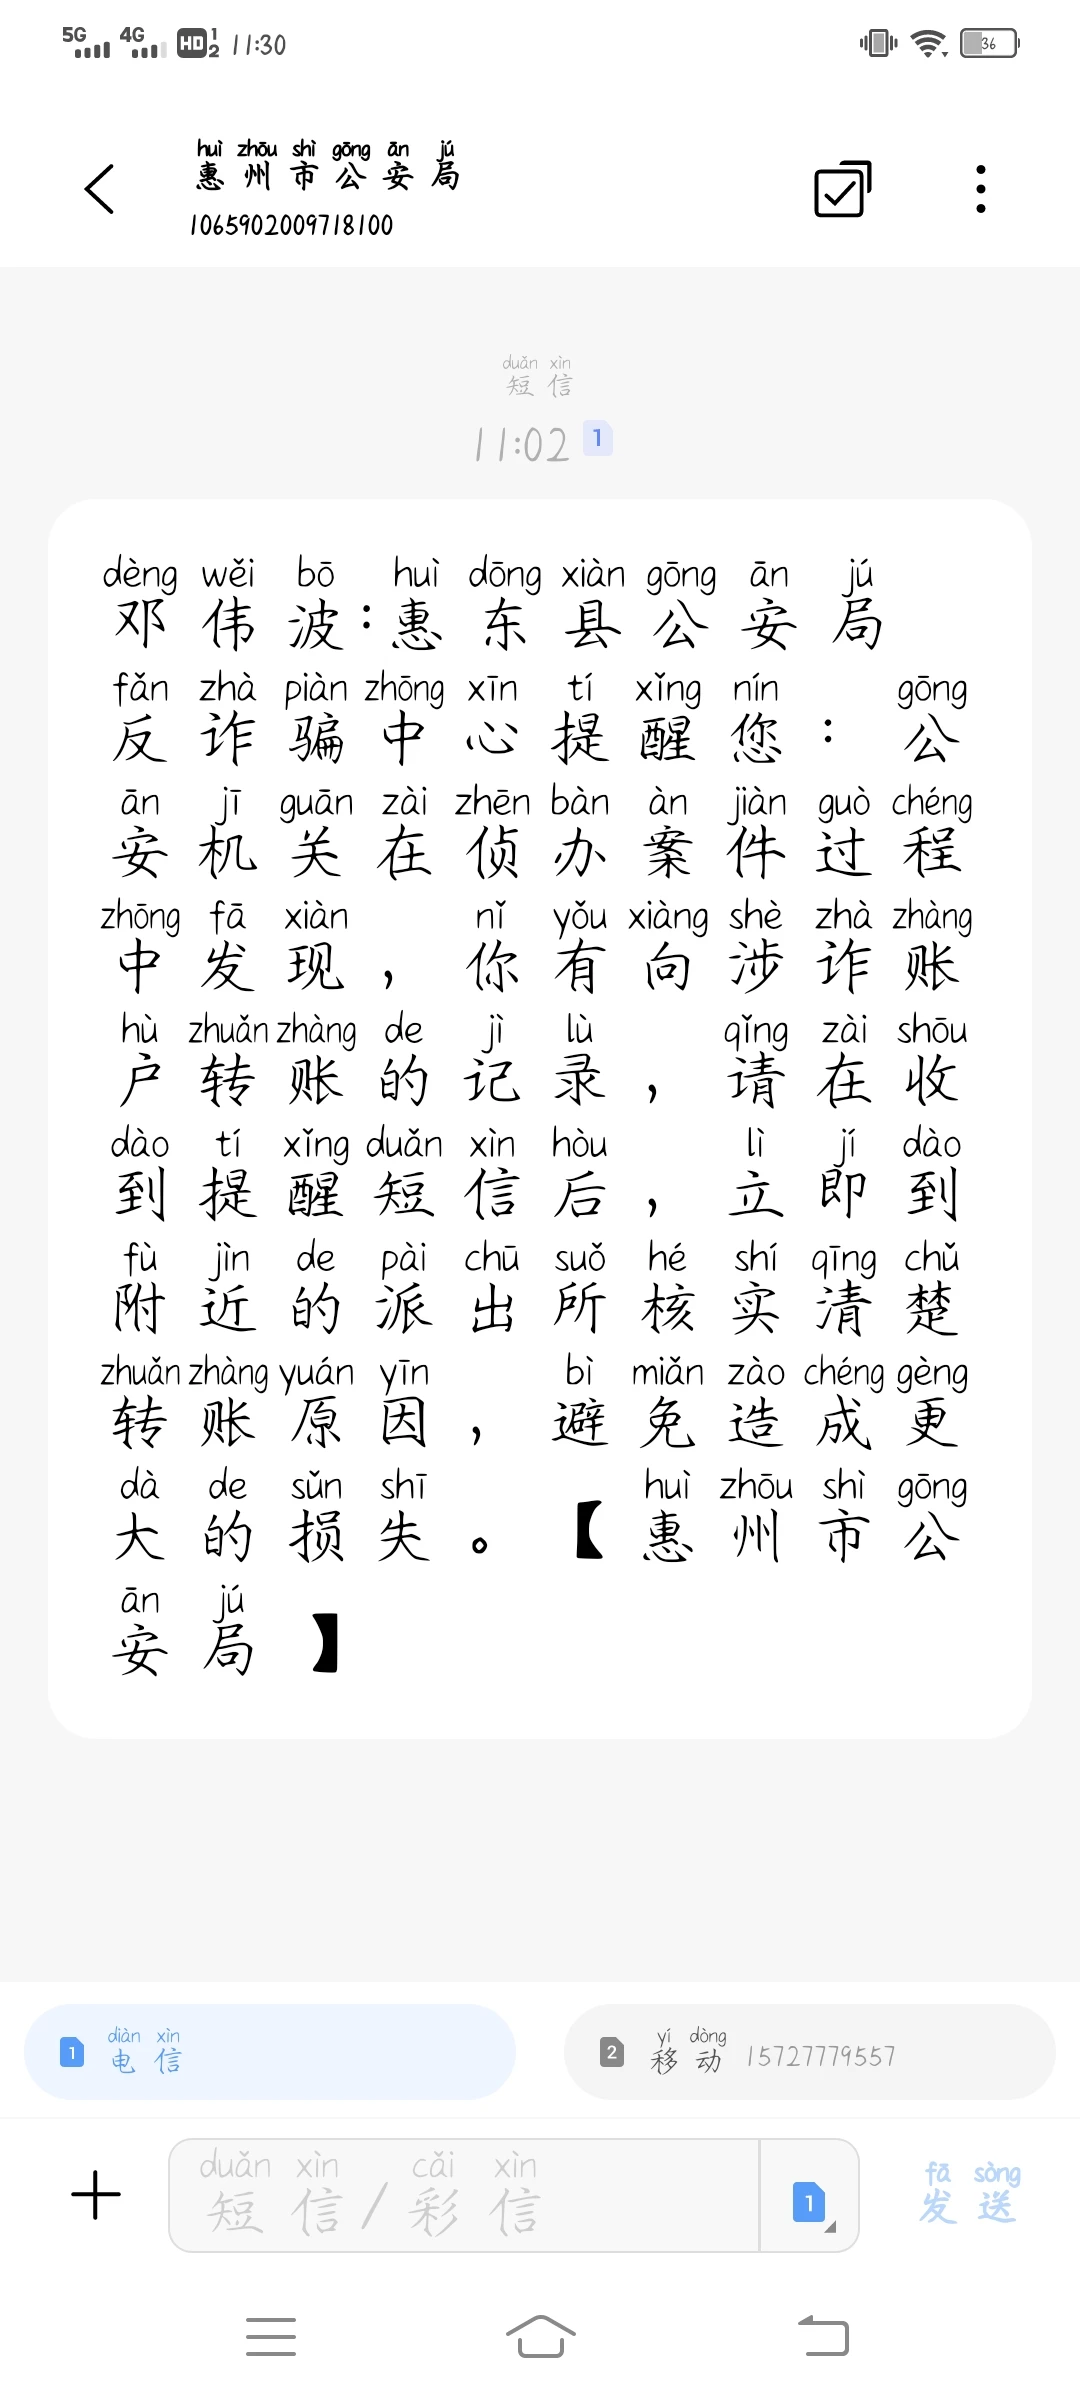 5G 4G HD 1 2 11:30 36
huì zhōu shì gōng ān jú
惠州市公安局
1065902009718100
duǎn xìn
短信
11:02 1
dèng wěi bō huì dōng xiàn gōng ān jú
邓伟波:惠东县公安局
fǎn zhà piàn zhōng xīn tí xǐng nín gōng
反诈骗中心提醒您：公
ān jī guān zài zhēn bàn àn jiàn guò chéng
安机关在侦办案件过程
zhōng fā xiàn nǐ yǒu xiàng shè zhà zhàng
中发现，你有向涉诈账
hù zhuǎn zhàng de jì lù qǐng zài shōu
户转账的记录，请在收
dào tí xǐng duǎn xìn hòu lì jí dào
到提醒短信后，立即到
fù jìn de pài chū suǒ hé shí qīng chǔ
附近的派出所核实清楚
zhuǎn zhàng yuán yīn bì miǎn zào chéng gèng
转账原因，避免造成更
dà de sǔn shī huì zhōu shì gōng
大的损失。【惠州市公
ān jú
安局】
diàn xìn yí dòng
1 电信 2 移动 15727779557
duǎn xìn cǎi xìn fā sòng
短信/彩信 1 发送